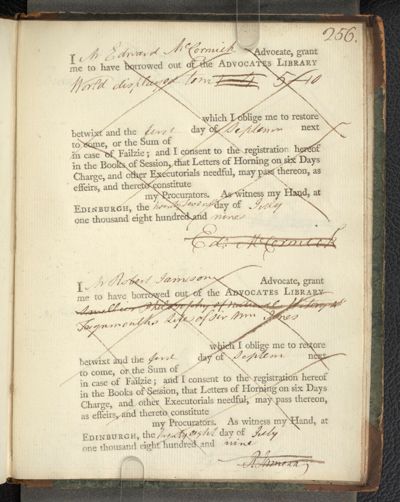 256.
I Mr Edward McCormick Advocate, grant
me to have borrowed out of the ADVOCATES LIBRARY
World displayed tom 5 10
which I oblige me to restore
betwixt and the first day of Septemr next
to come, or the Sum of
in case of Failzie; and I consent to the registration hereof
in the Books of Session, that Letters of Horning on six Days
Charge, and other Executorials needful, may pass thereon, as
effeirs, and thereto constitute
my Procurators. As witness my Hand, at
EDINBURGH, the twenty seventh day of July
one thousand eight hundred and nine
Ed. McCormick
I Mr Robert Jameson Advocate, grant
me to have borrowed out of the ADVOCATES LIBRARY
Smellies Philosophy of natural History
Teignmouths Life of Sir Wm Jones
which I oblige me to restore
betwixt and the first day of Septem next
to come, or the Sum of
in case of Failzie; and I consent to the registration hereof
in the Books of Session, that Letters of Horning on six Days
Charge, and other Executorials needful, may pass thereon,
as effeirs, and thereto constitute
my Procurators. As witness my Hand, at
EDINBURGH, the twenty eight day of July
one thousand eight hundred and nine